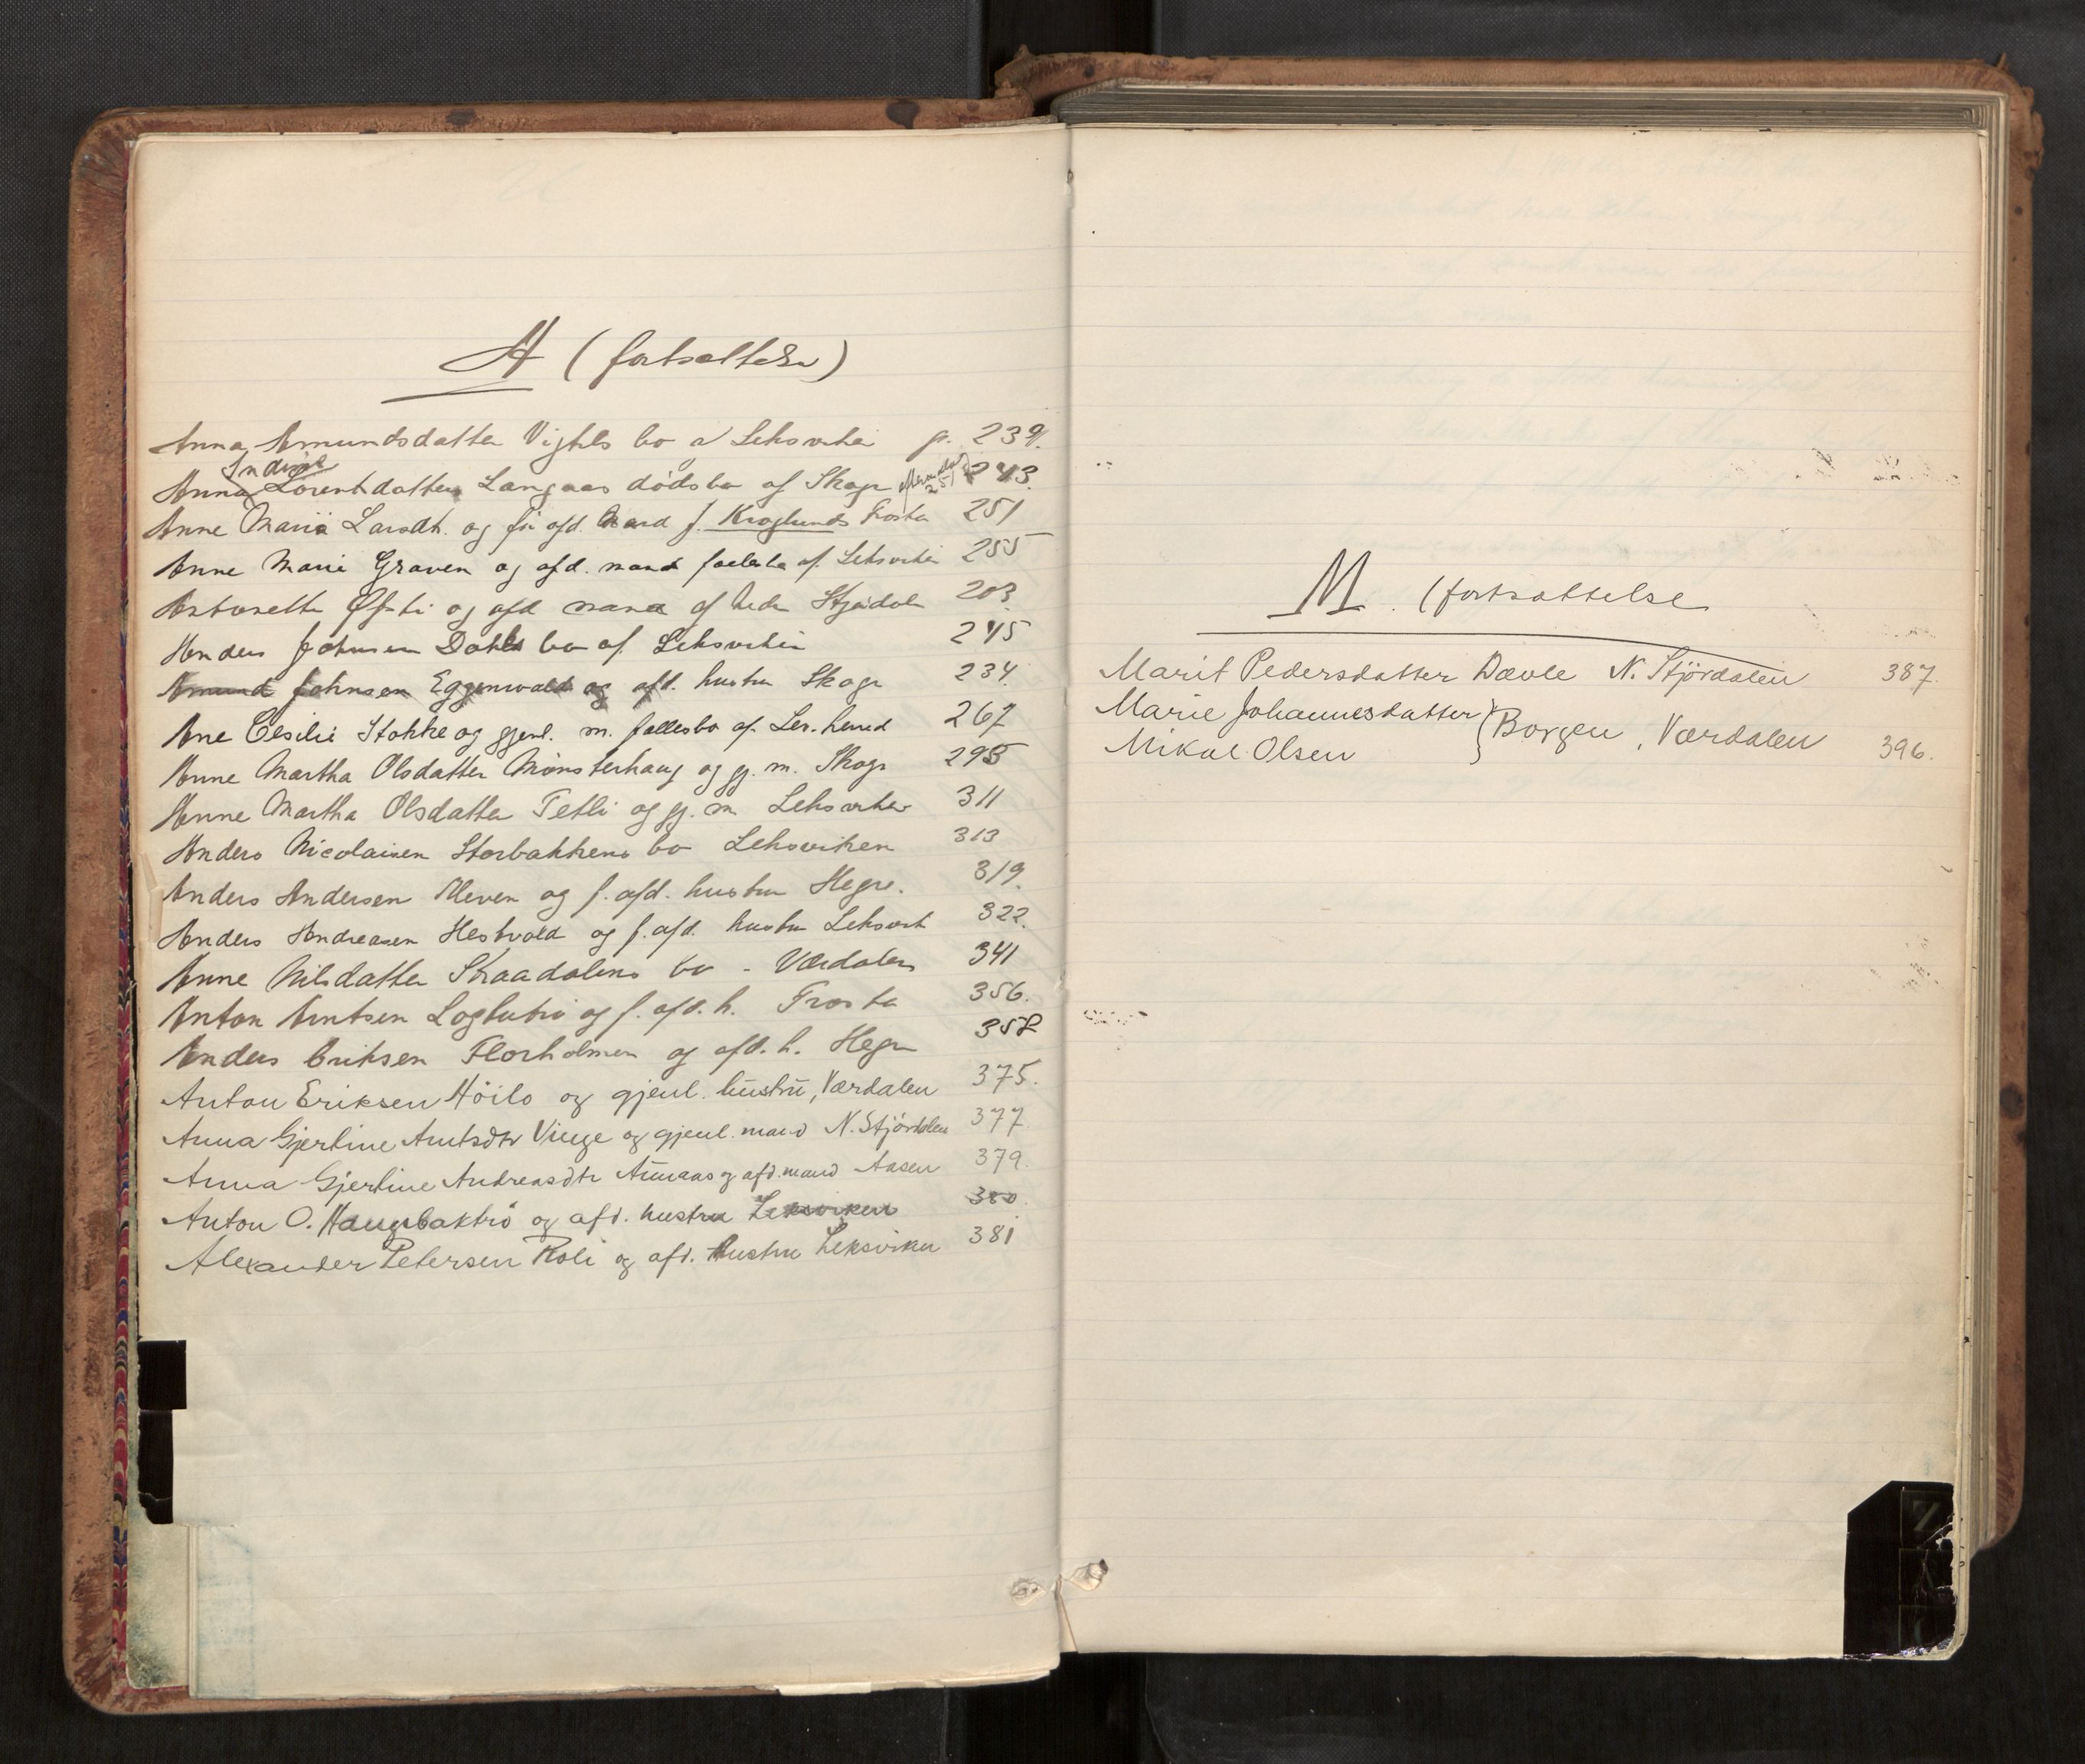 A (fortsættelse)
Anna Amundsdatter Vigtils bo a Leksviken p. 239.
Indine
Anna Lorentsdatters Langaas dødsbo af Skogn 243.
Anne Maria Larsdt. og før afd. Mand J. Kroglunds Frosta 251
Anne Marie Graven og afd. mand fællesbo af Leksviken 255
Antonette Øfsti og afd mand af Nedr Stjørdalen 203
Anders Johnsen Dahls bo af Leksviken 245
Amund Johnsen Eggenvald og afd. hustru Skogn 234.
Ane Cesilie Stokke og gjenl. m. fællesbo af Lev. herred 267
Anne Martha Olsdatter Mönsterhaug og gj. m. Skogn 295
Anne Martha Olsdatter Tetli og gj. m Leksviken 311
Anders Nicolaisen Storbakkens bo Leksviken 313
Anders Andersen Kleven og f. afd. hustru Hegre. 319.
Anders Andreasen Hestvold og f. afd. hustru Leksvik 322.
Anne Nilsdatter Skaadalens bo - Værdalen 341
Anton Arntsen Logtutrø og f. afd. h. Frosta 356.
Anders Eriksen Florholmen og afd. h. Hegre 358
Anton Eriksen Höilo og gjenl. hustru, Værdalen 375.
Anna Gjertine Arntsdtr Vinge og gjenl. mand N. Stjördalen 377.
Anna Gjertine Andreasdtr Aunaas og afd. mand Aasen 379.
Anton O. Haugsbaktrö og afd. hustru Leksviken 380.
Alexander Petersen Roli og afd. hustru Leksviken 381
M. (fortsættelse
Marit Pedersdatter Dævle N. Stjördalen 387.
Marie Johannesdatter } Borgen, Værdalen
Mikal Olsen 396.